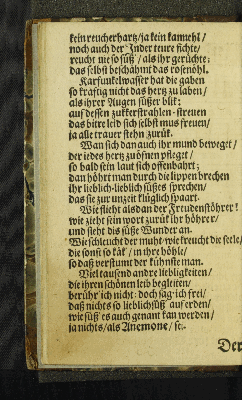 kein reucherhartz/ja kein kannehl/
noch auch der Inder teure fichte/
reucht nie so süß/als ihr gerüchte:
das selbst beschähmt das rosenöhl.
Karfunkelwasser hat die gaben
so krafftig nicht das hertz zu laben/
als ihrer Augen süßer blik:
auf dessen zukkerstrahlen-streuen
das bitre leid sich selbst mus freuen/
ja alle trauer stehn zurük.
Wan sich dan auch ihr mund beweget/
der iedes hertz zu öfnen pfleget/
so bald sein laut sich offenbahrt;
dan höhrt man durch die lippen brechen
ihr lieblich-lieblich süßes sprechen/
das sie zur unzeit klüglich spaart.
Wie steht als dan der Freudenstöhrer!
wie zieht sein wort zurük ihr höhrer/
und sieht die süße Wunder an.
Wie schleucht der muht/wie kreucht die seele/
die sonst so käk/in ihre höhle/
so daß verstumt der kühnste man.
Viel tausend andre liebligkeiten/
die ihren schönen leib begleiten/
berühr ich nicht: doch sag-ich frei/
daß nichts so lieblichsüß auf erden/
wie süß es auch genant kan werden/
ja nichts/als Anemone/sei.
Der